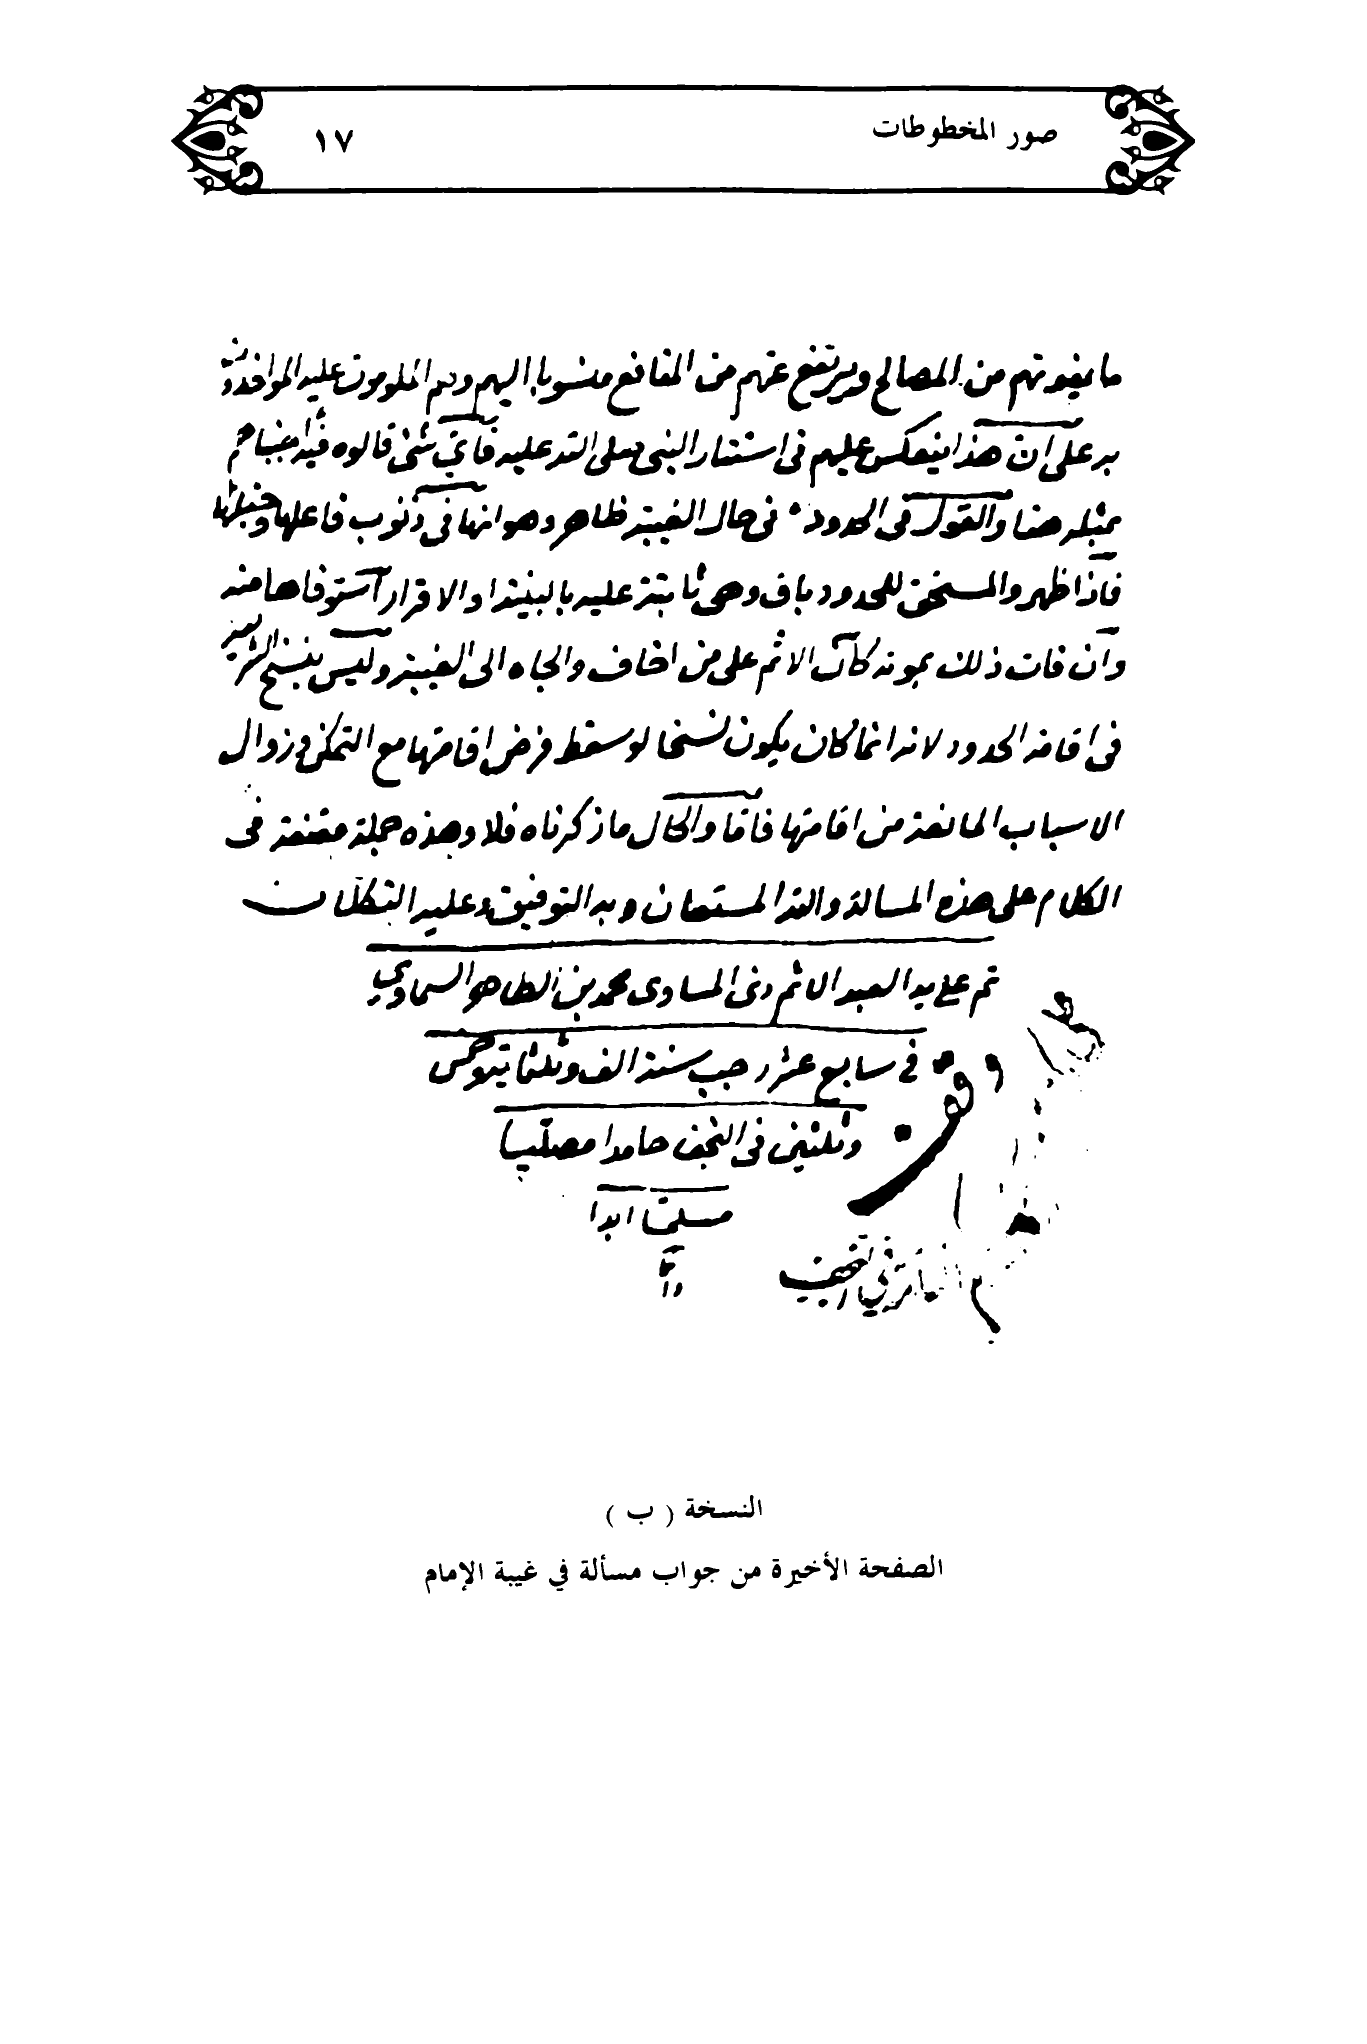 صور المخطوطات
١٧
ما يفوتهم من المصالح ويرتفع عنهم من المنافع منسوبا اليهم وهم الملومون عليه المؤاخذون
به على ان هذا ينعكس عليهم في استتار النبي صلى الله عليه فاي شئ قالوه فيه أجبناهم
بمثله هنا والقول في الحدود في حال الغيبة ظاهر وهو انها في ذنوب فاعلها وجنوبهم
فاذا ظهر والمستحق للحدود باق وهي ثابتة عليه بالبينة او الاقرار استوفاها منه
وان فات ذلك بموته كان الاثم على من اخاف والجاه الى الغيبة وليس بنسخ الشريعة
في اقامة الحدود لانه انما كان يكون نسخا لو سقط فرض اقامتها مع التمكن وزوال
الاسباب المانعة من اقامتها فاما والحال ما ذكرناه فلا وهذه جملة مقنعة في
الكلام على هذه المسالة والله المستعان وبه التوفيق وعليه التكلان
تم على يد العبد الاثم ذى المساوى محمد بن الطاهر السماوي
في سابع عشر رجب سنة الف وثلثمائة وخمس
وثلثين في النجف حامدا مصليا
مسلما ابدا
النسخة ( ب )
الصفحة الأخيرة من جواب مسألة في غيبة الإمام